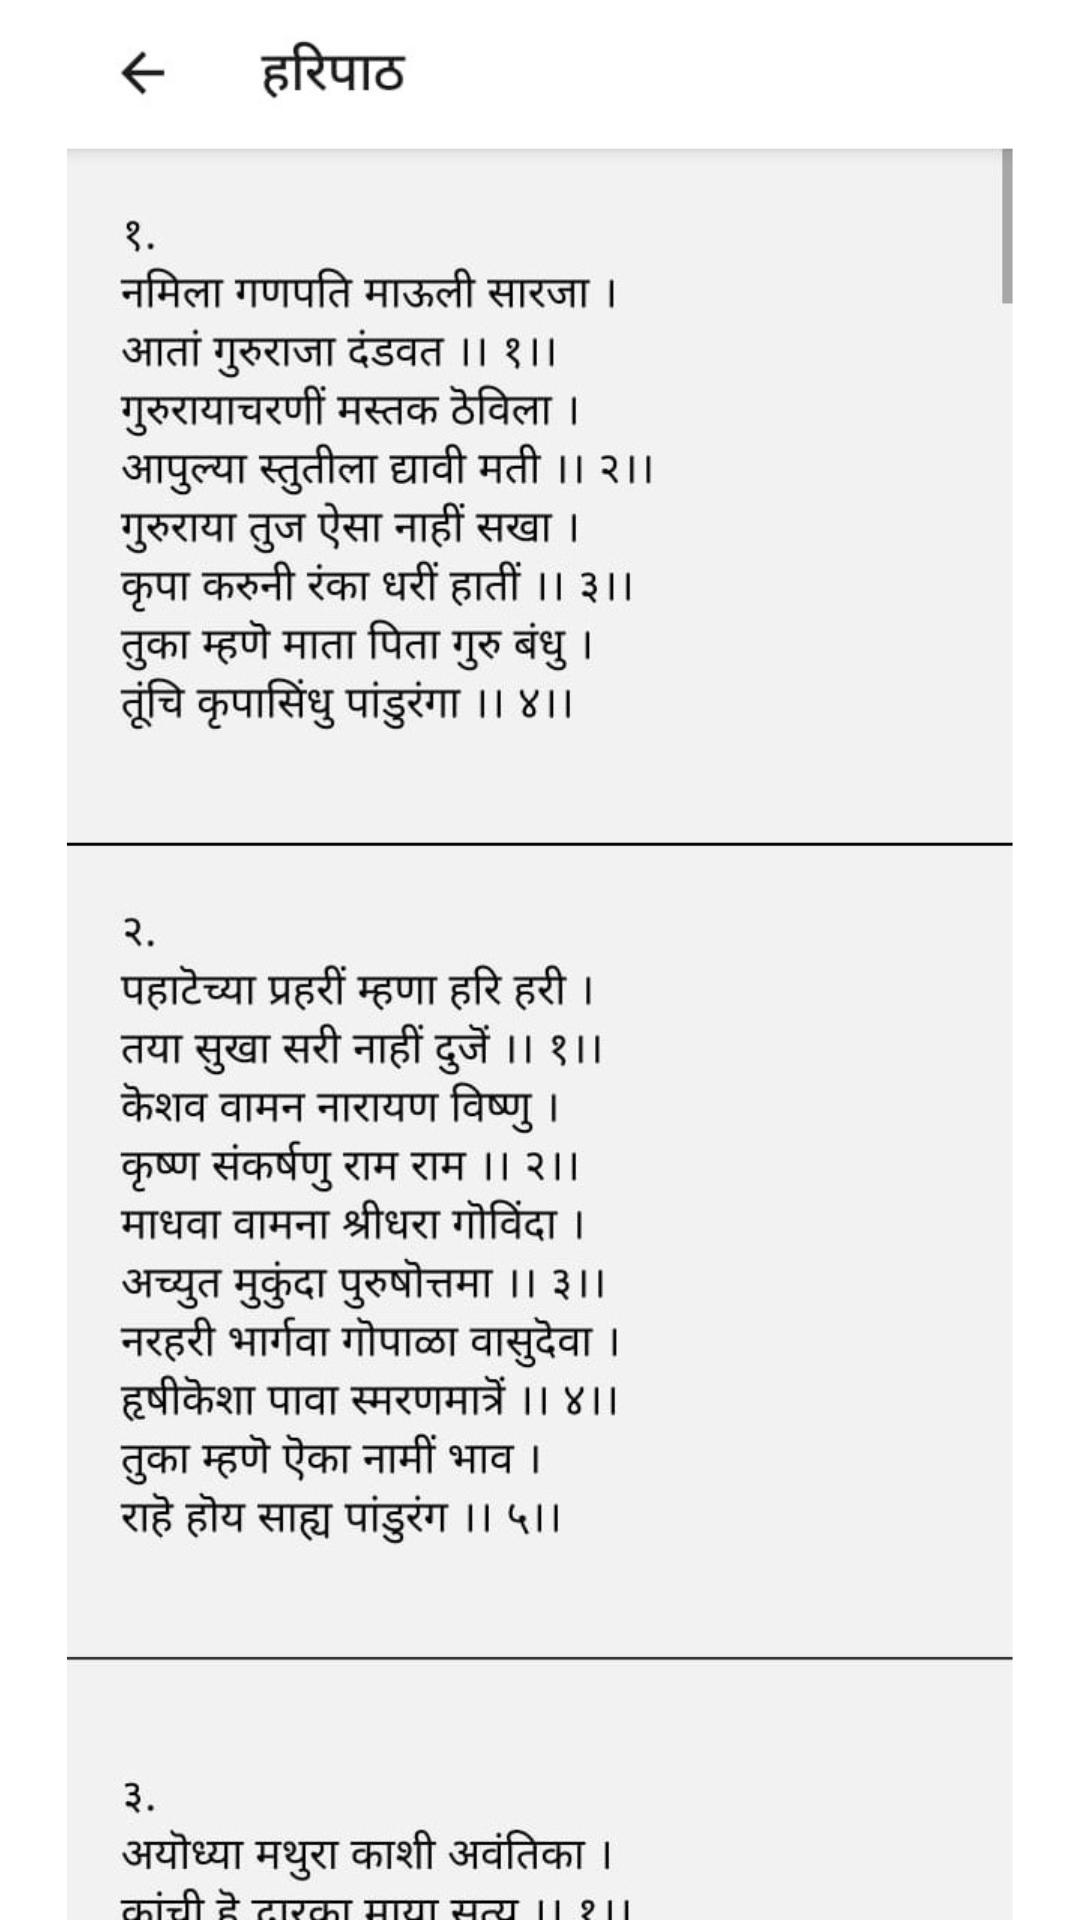 हरिपाठ
१.
नमिला गणपति माऊली सारजा ।
आतां गुरुराजा दंडवत ।। १।।
गुरुरायाचरणीं मस्तक ठॆविला ।
आपुल्या स्तुतीला द्यावी मती ।। २।।
गुरुराया तुज ऐसा नाहीं सखा ।
कृपा करुनी रंका धरीं हातीं ।। ३।।
तुका म्हणॆ माता पिता गुरु बंधु ।
तूंचि कृपासिंधु पांडुरंगा ।। ४।।
२.
पहाटॆच्या प्रहरीं म्हणा हरि हरी ।
तया सुखा सरी नाहीं दुजॆं ।। १।।
कॆशव वामन नारायण विष्णु ।
कृष्ण संकर्षणु राम राम ।। २।।
माधवा वामना श्रीधरा गॊविंदा ।
अच्युत मुकुंदा पुरुषॊत्तमा ।। ३।।
नरहरी भार्गवा गॊपाळा वासुदॆवा ।
हृषीकॆशा पावा स्मरणमात्रॆं ।। ४।।
तुका म्हणॆ ऎका नामीं भाव ।
राहॆ हॊय साह्य पांडुरंग ।। ५।।
३.
अयॊध्या मथुरा काशी अवंतिका ।
कांची हॆ द्वारका माया सत्य ।। १।।